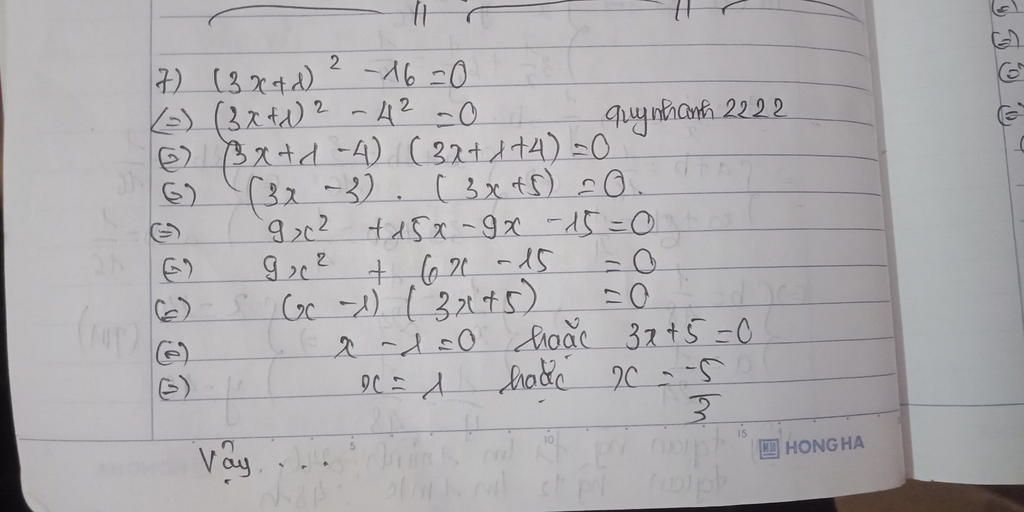 7) (3x+1)² - 16 = 0
(=) (3x+1)² - 4² = 0 quynhanh 2222
(=) (3x+1-4) (3x+1+4) = 0
(=) (3x - 3) . (3x+5) = 0.
(=) 9x² + 15x - 9x - 15 = 0
(=) 9x² + 6x - 15 = 0
(=) (x - 1) (3x+5) = 0
(=) x - 1 = 0 hoặc 3x+5 = 0
(=) x = 1 hoặc x = -5/3
Vậy ...
5 10 15
HONG HA